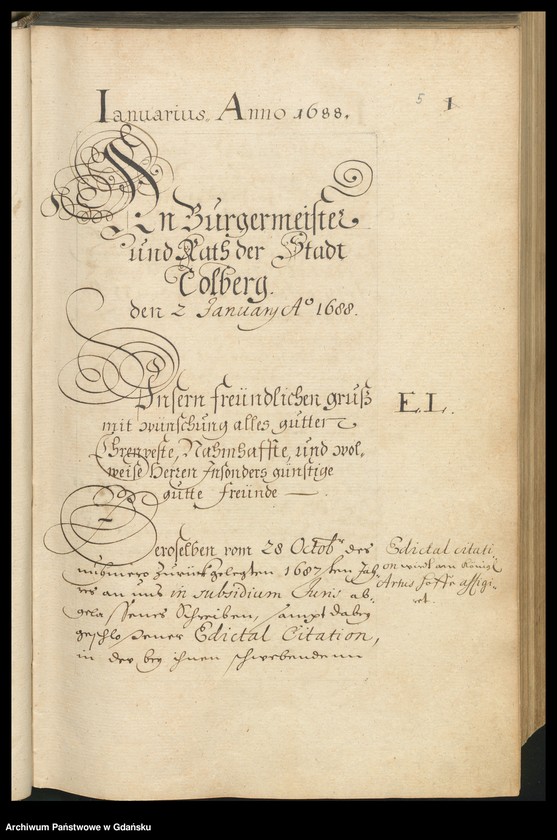 Ianuarius. Anno 1688.
5 1
An Bürgermeister
und Rath der Stadt
Colberg.
den 2 January Aº 1688.
Unsern freündlichen gruß
mit wünschung alles gutter
Ehrenveste, Nahmhaffte, und wol,
weise Herren Insonders günstige
gutte freünde —
E. L.
Deroselben vom 28 Octobr des
nuhmero zurückgelegten 1687ten Jah,
res an uns in subsidium Juris ab,
gelassenes Schreiben, sampt dabey
geschlossener Edictal Citation,
in der bey ihnen schwebendenn
Edictal citati,
on wirdt am Königl
Artus Hoffe affigi,
ret.
Archiwum Państwowe w Gdańsku